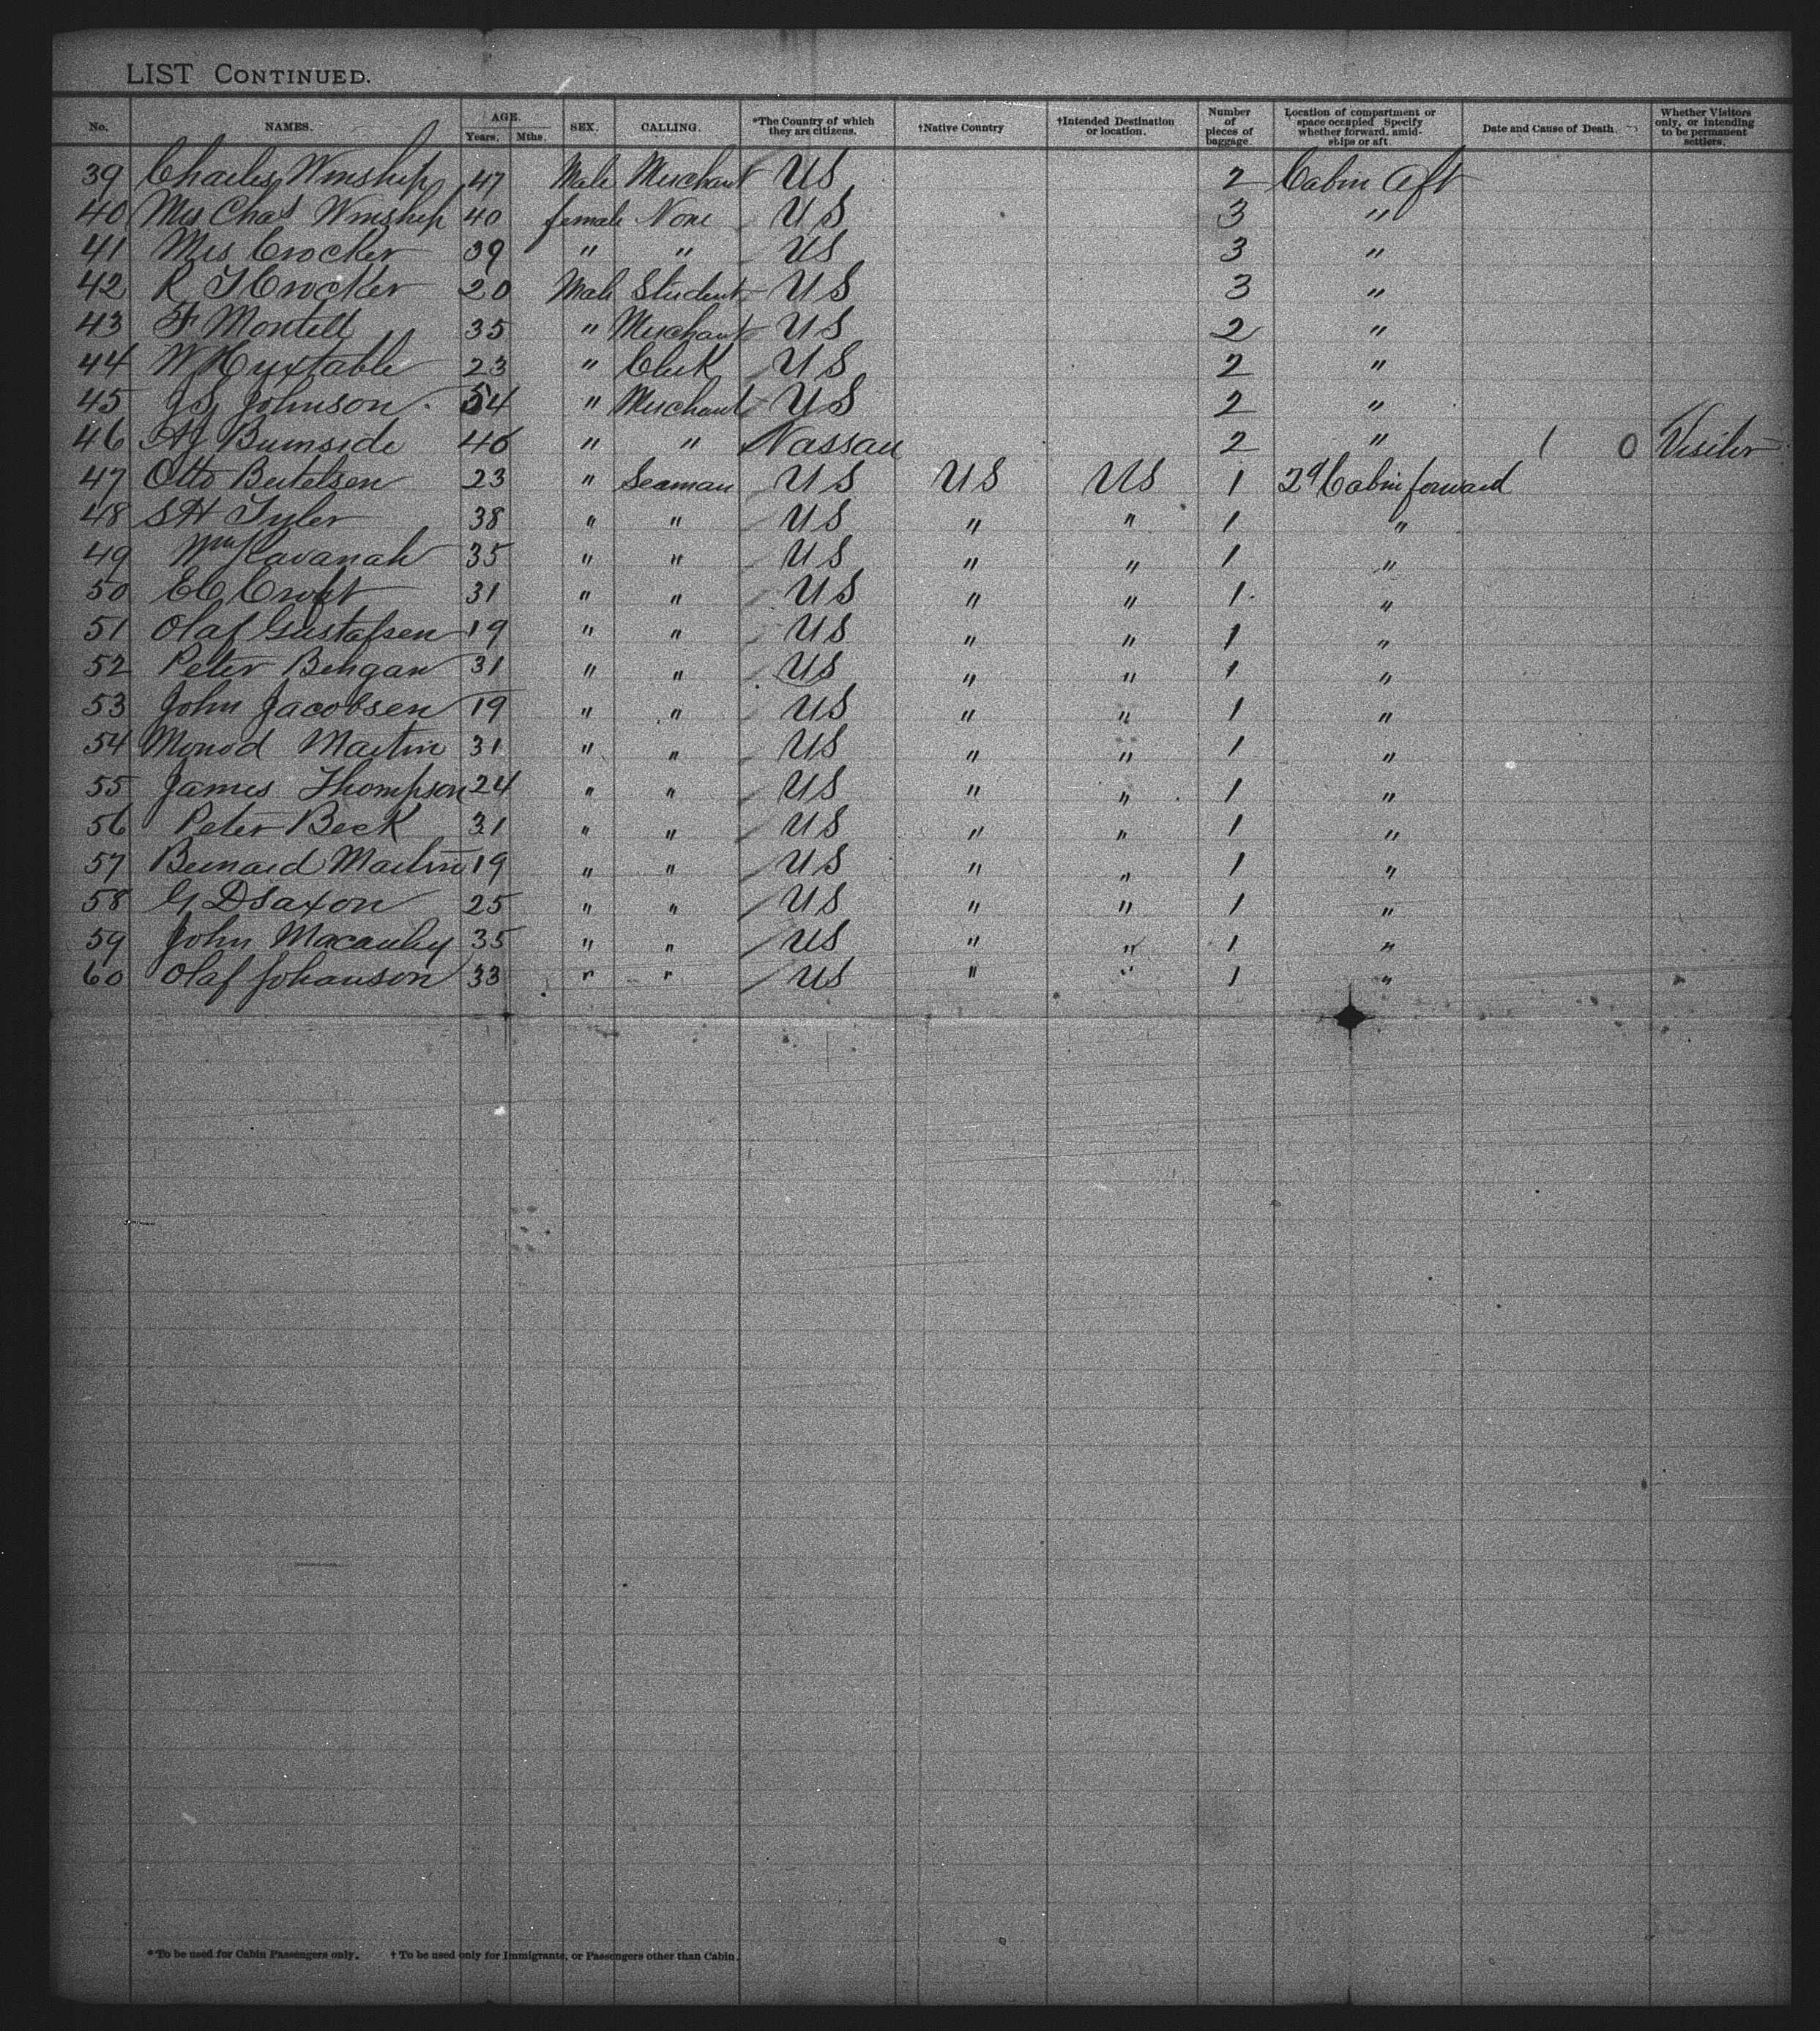 LIST CONTINUED.
No. NAMES. AGE. Years. Mths. SEX. CALLING. *The Country of which they are citizens. †Native Country †Intended Destination or location. Number of pieces of baggage. Location of compartment or space occupied Specify whether forward, amid-ships or aft Date and Cause of Death. Whether Visitors only, or intending to be permanent settlers.
39 Charles Winship 47 Male Merchant US 2 Cabin Aft
40 Mrs Chas Winship 40 female None US 3 "
41 Mrs Crocker 39 " " US 3 "
42 R T Crocker 20 Male Student US 3 "
43 F Montell 35 " Merchant US 2 "
44 W Huxtable 23 " Clerk US 2 "
45 J S Johnson 54 " Merchant US 2 "
46 Burnside 46 " " Nassau 2 " 1 0 Visitor
47 Otto Bertelsen 23 " Seaman US US US 1 2d Cabin forward
48 S H Tyler 38 " " US " " 1 "
49 Wm Kavanah 35 " " US " " 1 "
50 E C Croft 31 " " US " " 1 "
51 Olaf Gustafsen 19 " " US " " 1 "
52 Peter Bengan 31 " " US " " 1 "
53 John Jacobsen 19 " " US " " 1 "
54 Monod Martin 31 " " US " " 1 "
55 James Thompson 24 " " US " " 1 "
56 Peter Beck 31 " " US " " 1 "
57 Bernard Martin 19 " " US " " 1 "
58 G D Saxon 25 " " US " " 1 "
59 John Macauley 35 " " US " " 1 "
60 Olaf Johanson 33 " " US " " 1 "
*To be used for Cabin Passengers only. †To be used only for Immigrants, or Passengers other than Cabin.